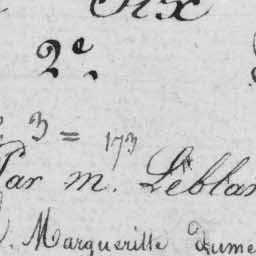 Six
2e.
3 = 173
Par m. Leblan
Margueritte Dume